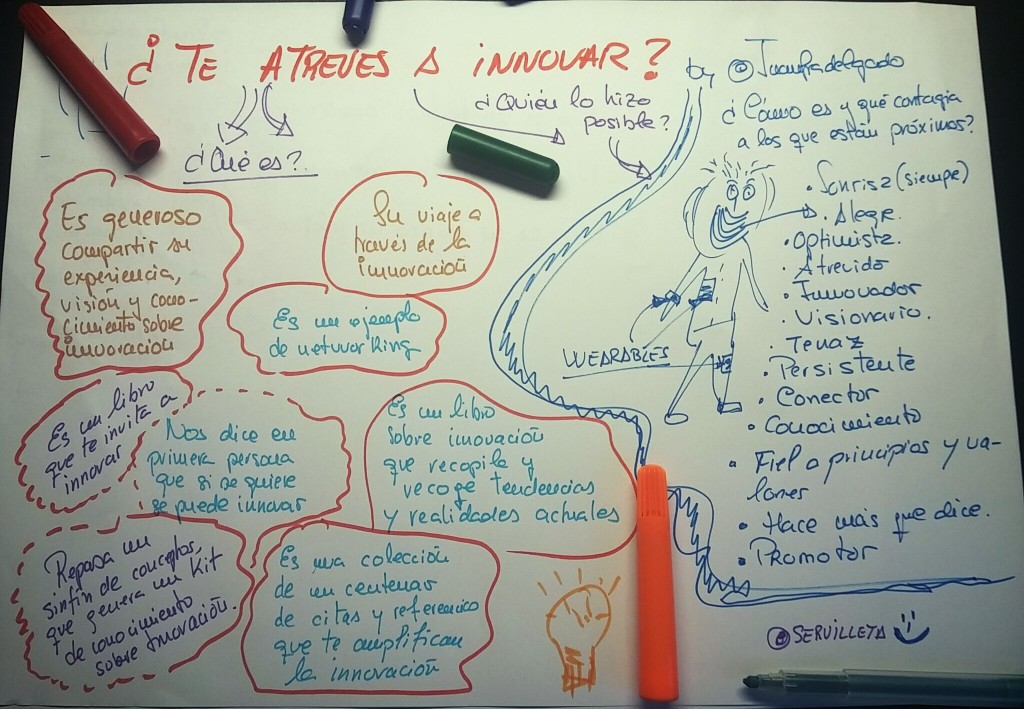 ¿TE ATREVES A iNNOVAR?
by @Juanfradelgado
¿Qué es?
¿Quién lo hizo
posible?
¿Cómo es y qué contagia
a los que están próximos?
Es generoso
compartir su
experiencia,
visión y cono-
cimiento sobre
innovación
Su viaje a
través de la
innovación
Es un ejemplo
de networking
Es un libro
que te invita a
innovar
Nos dice en
primera persona
que si se quiere
se puede innovar
Es un libro
sobre innovación
que recopila y
recoge tendencias
y realidades actuales
Repasa un
sinfín de conceptos,
que genera un Kit
de conocimiento
sobre Innovación.
Es una colección
de un centenar
de citas y referencias
que te amplifican
la innovación
WEARABLES
• Sonrisa (siempre)
• Alegre.
• Optimista.
• Atrevido
• Innovador
• Visionario.
• Tenaz
• Persistente
• Conector
• Conocimiento
• Fiel a principios y va-
lores
• Hace más que dice.
• Promotor
@SERVILLETA